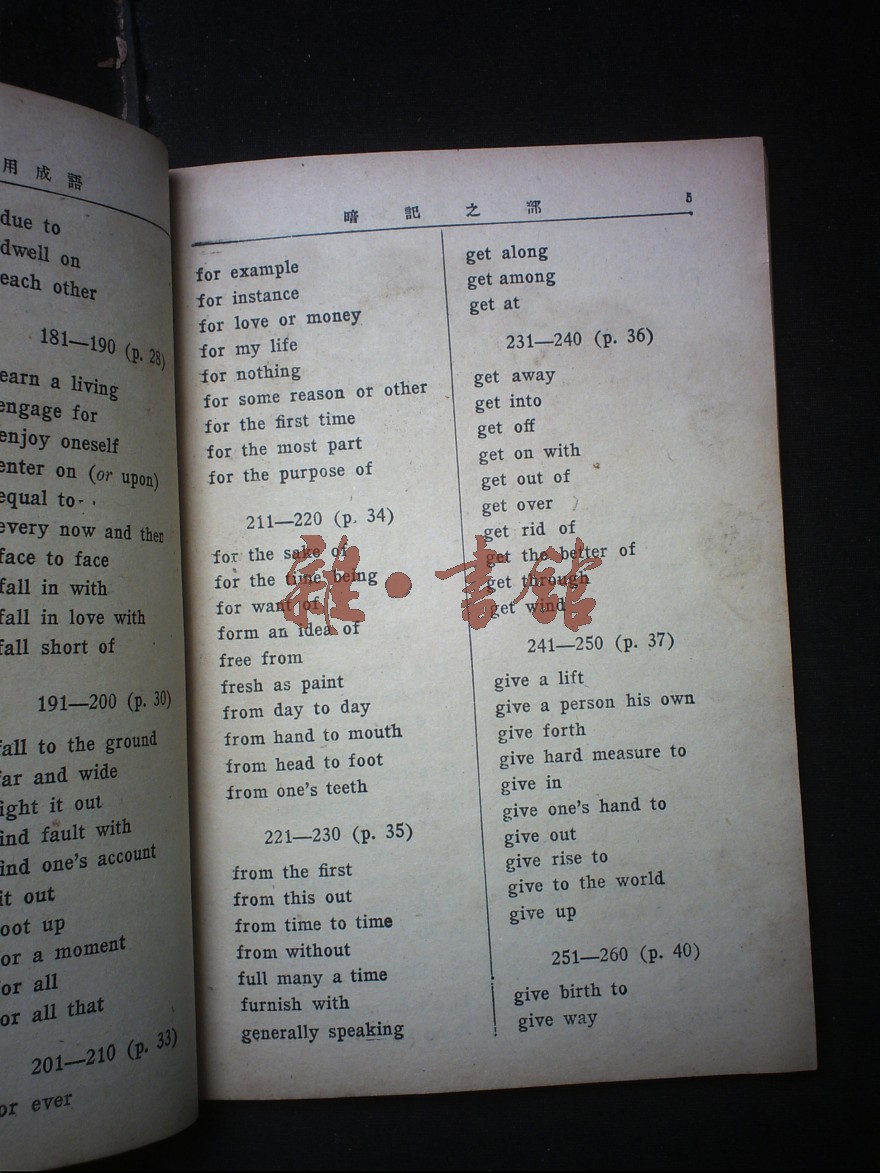 用成語
due to
dwell on
each other
181—190 (p. 28)
earn a living
engage for
enjoy oneself
enter on (or upon)
equal to
every now and then
face to face
fall in with
fall in love with
fall short of
191—200 (p. 30)
fall to the ground
far and wide
ight it out
ind fault with
ind one's account
it out
oot up
or a moment
or all
or all that
201—210 (p. 33)
or ever
暗記之部 5
for example
for instance
for love or money
for my life
for nothing
for some reason or other
for the first time
for the most part
for the purpose of
211—220 (p. 34)
for the sake of
for the time being
for want of
form an idea of
free from
fresh as paint
from day to day
from hand to mouth
from head to foot
from one's teeth
221—230 (p. 35)
from the first
from this out
from time to time
from without
full many a time
furnish with
generally speaking
get along
get among
get at
231—240 (p. 36)
get away
get into
get off
get on with
get out of
get over
get rid of
get the better of
get through
get wind
241—250 (p. 37)
give a lift
give a person his own
give forth
give hard measure to
give in
give one's hand to
give out
give rise to
give to the world
give up
251—260 (p. 40)
give birth to
give way
雜·書館